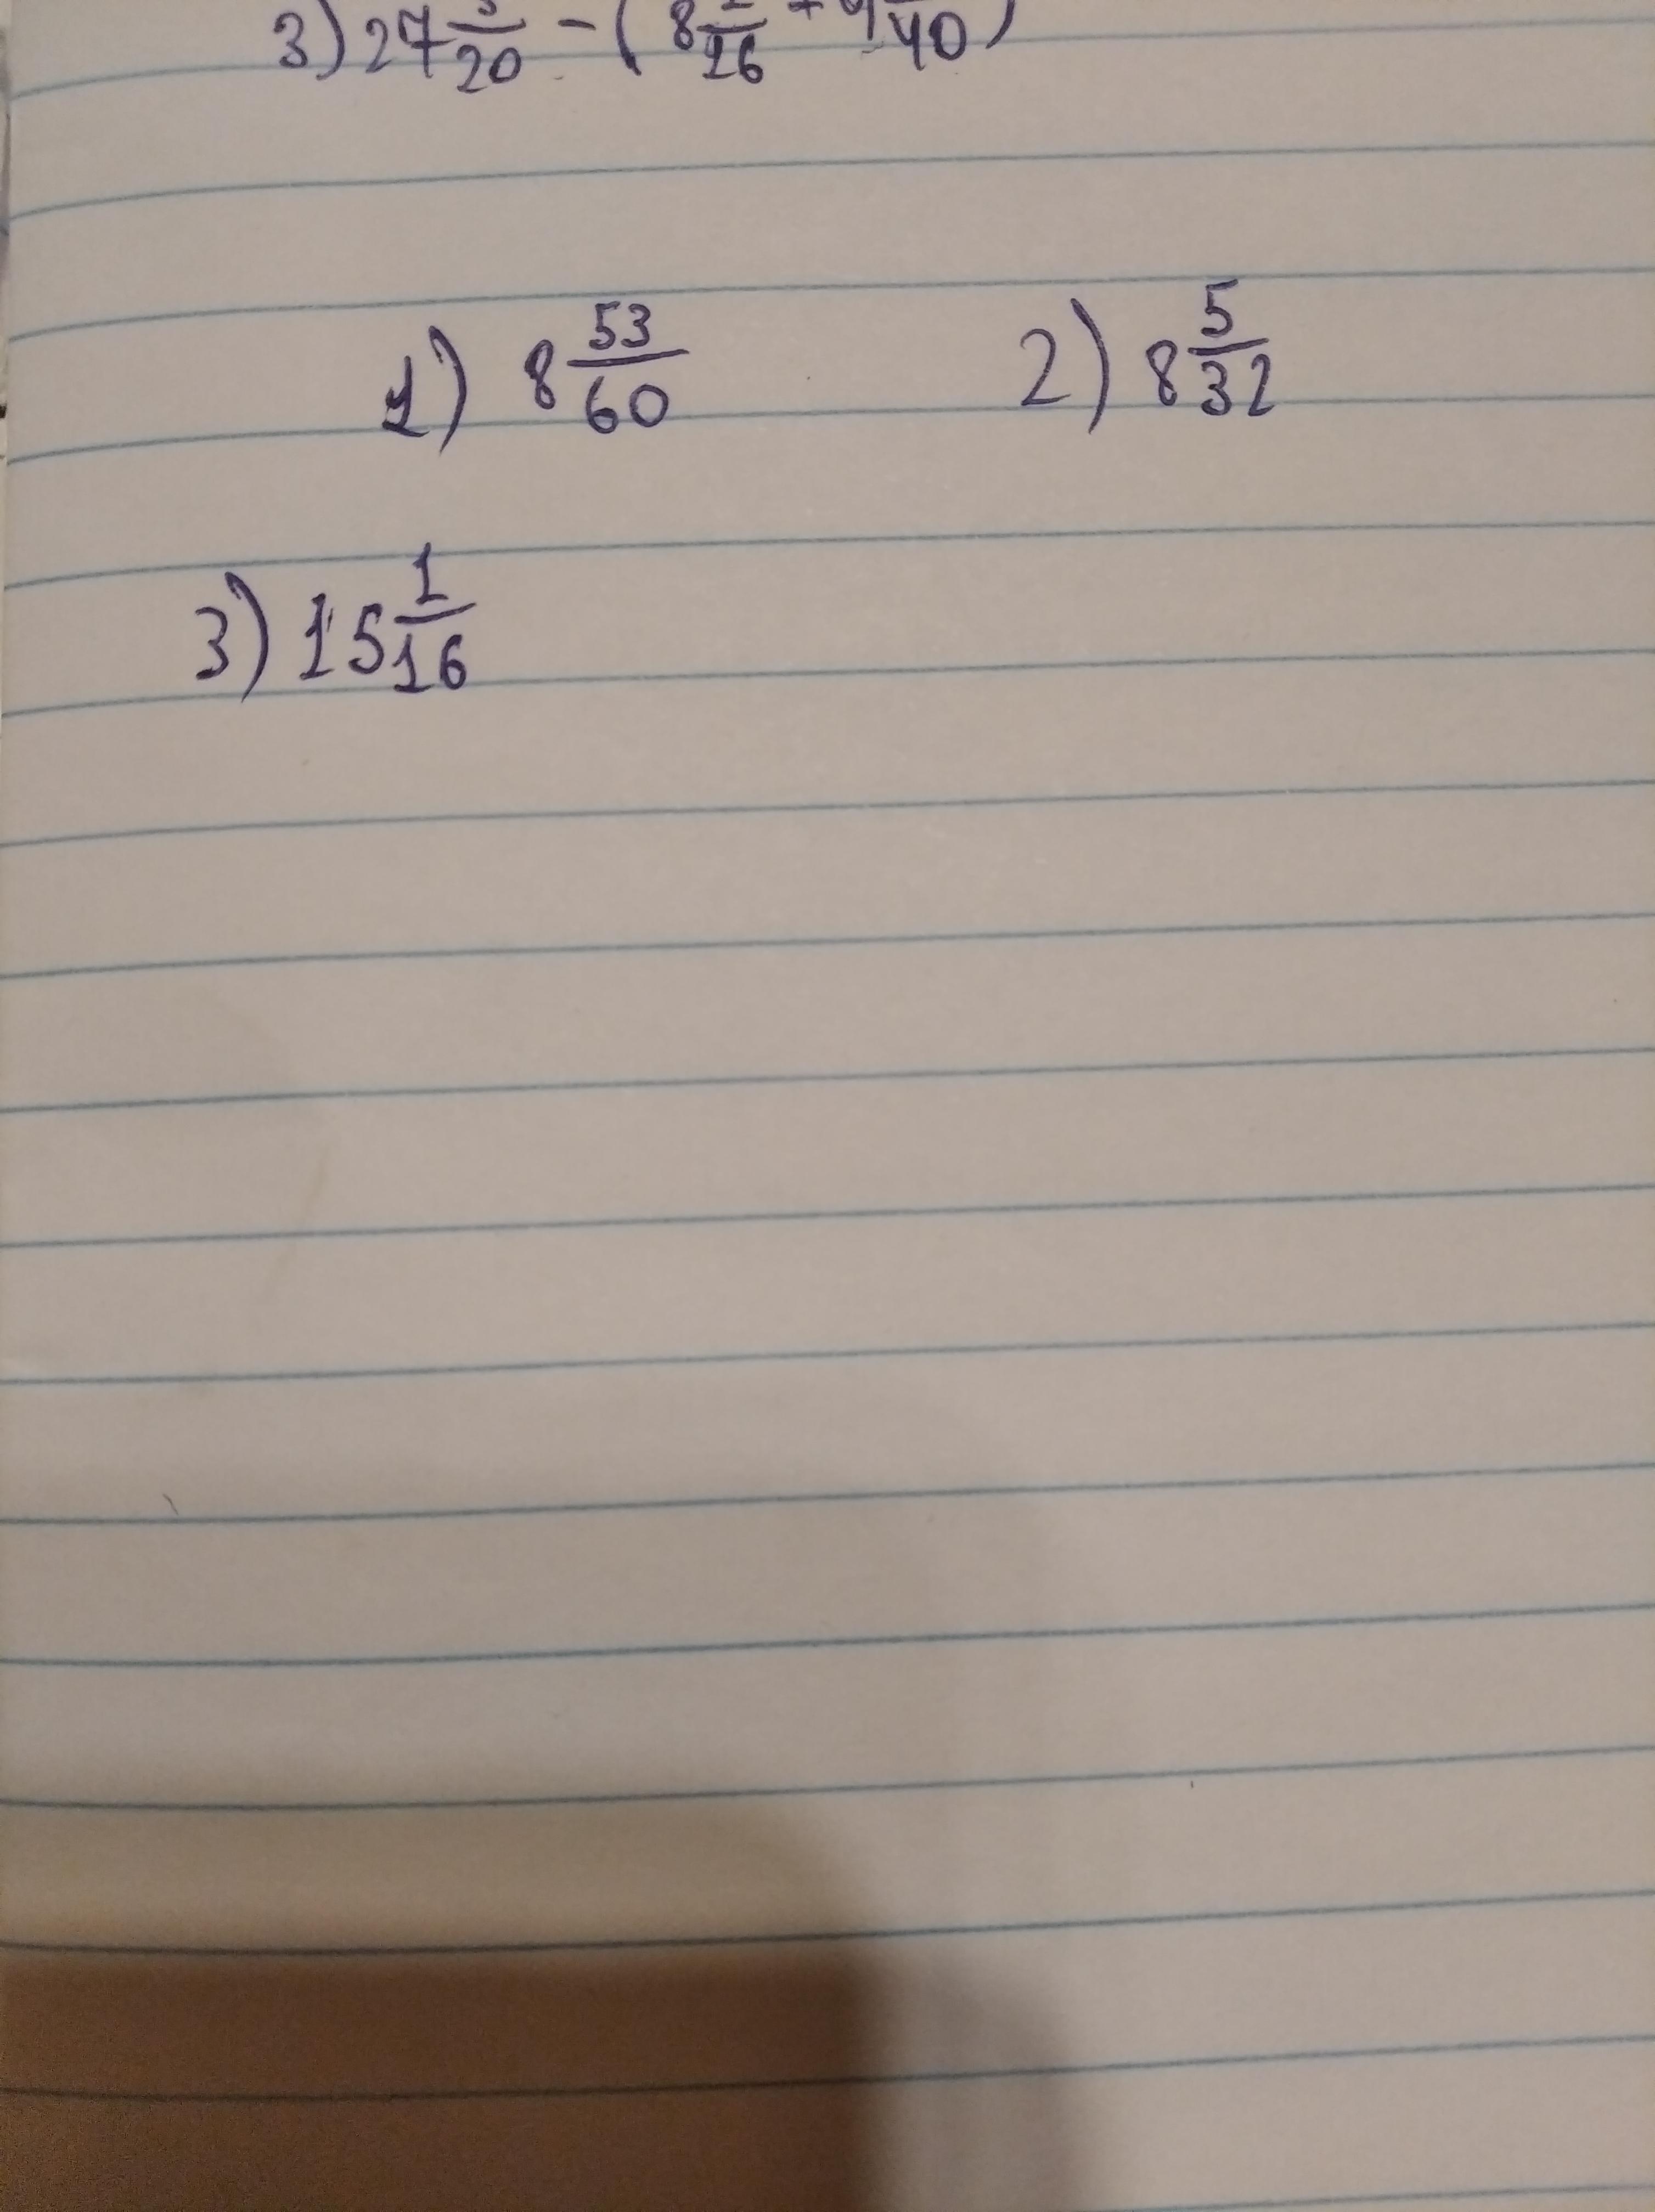 3) 27 /20 - (8 /16 + /40)
1) 8 53/60 2) 8 5/32
3) 15 1/16